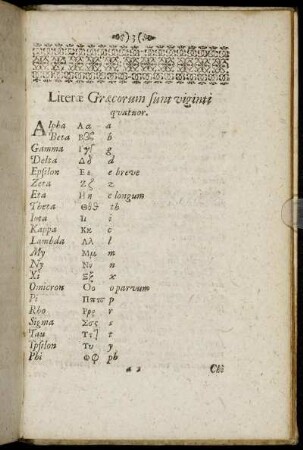 3
Literæ Græcorum sunt viginti
qvatuor.
Alpha Αα a
Beta Βϐβ b
Gamma Γγ g
Delta Δδ d
Epsilon Εε e breve
Zeta Ζζ z
Eta Ηη e longum
Theta Θθϑ th
Iota Ιι i
Kappa Κκ c
Lambda Λλ l
My Μμ m
Ny Νν n
Xi Ξξ x
Omicron Οο o parvum
Pi Ππϖ p
Rho Ρρς r
Sigma Σσς s
Tau Ττ t
Ypsilon Υυ y
Phi Φφ ph
a 2